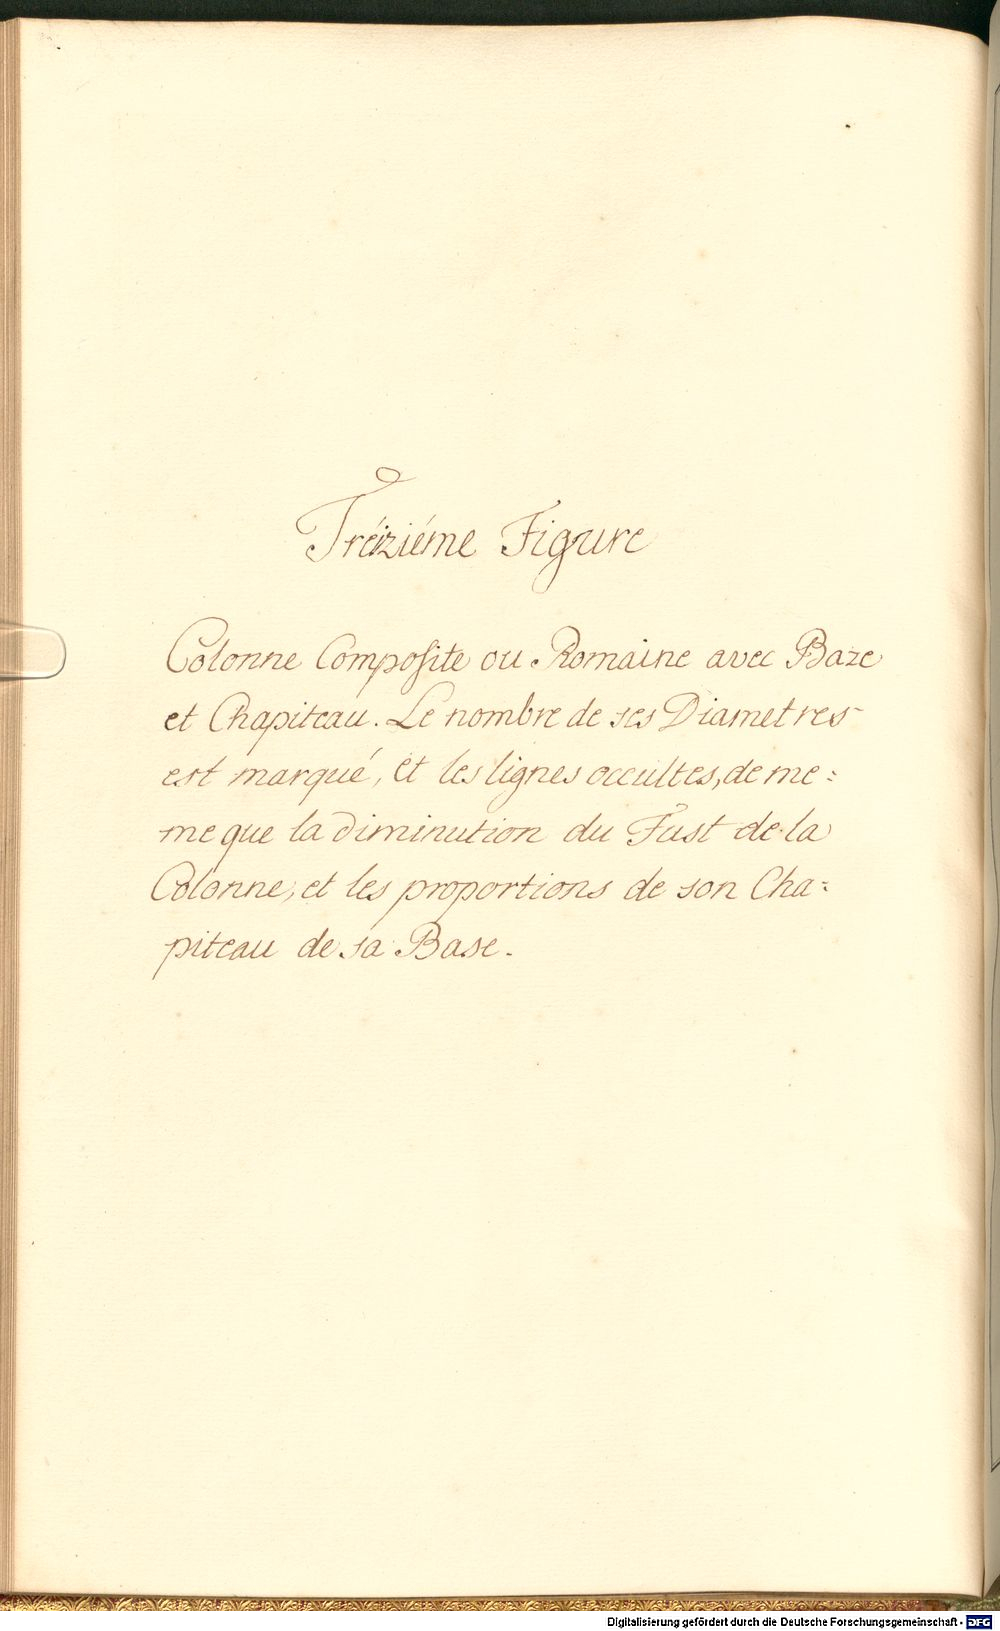 Tréiziéme Figure
Colonne Composite ou Romaine avec Baze
et Chapiteau. Le nombre de ses Diametres
est marqué, et les lignes occultes, de me=
me que la diminution du Fust de la
Colonne, et les proportions de son Cha=
piteau de sa Base.
Digitalisierung gefördert durch die Deutsche Forschungsgemeinschaft - DFG